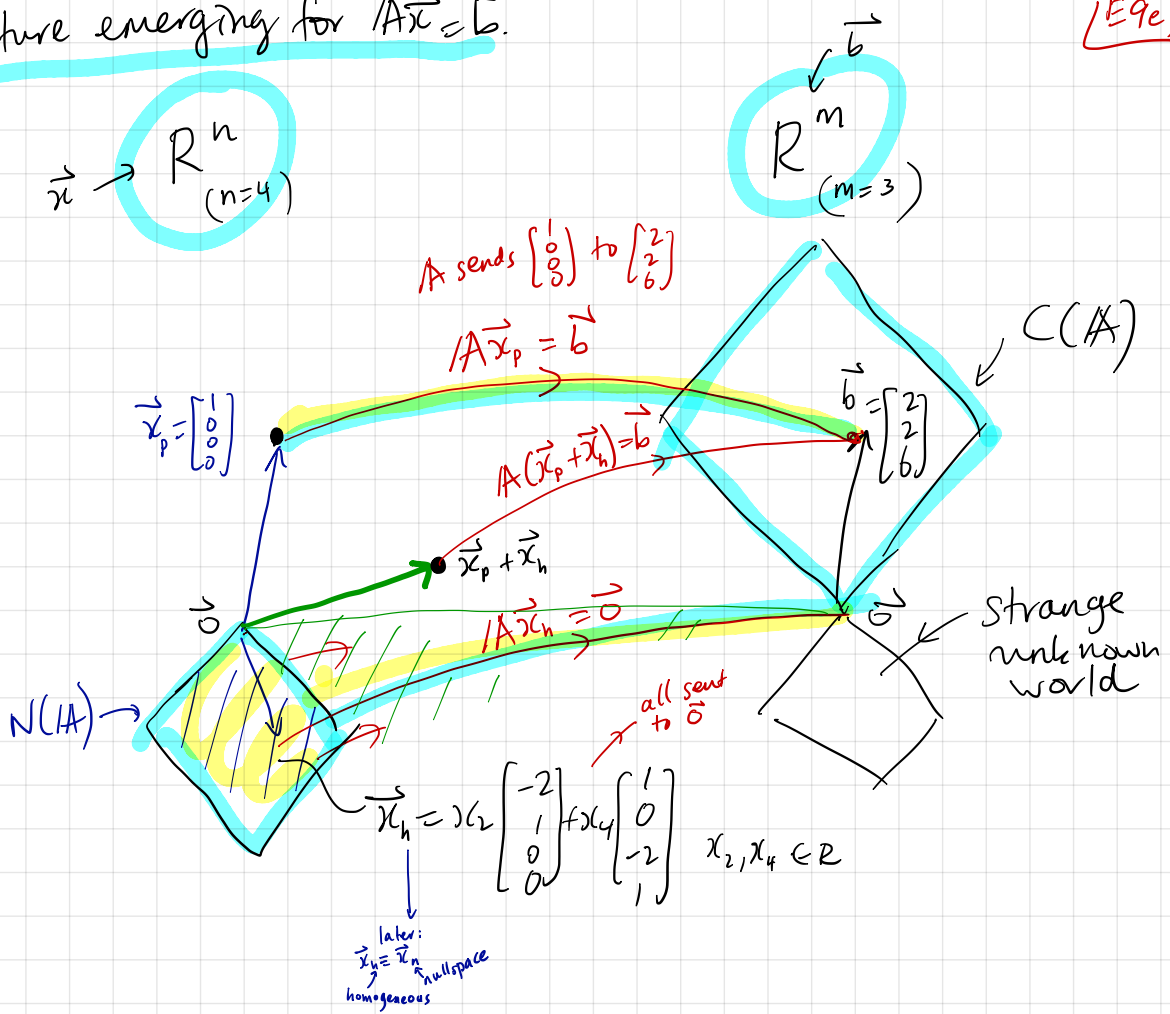 ture emerging for Ax⃗ = b⃗.
E9e
b⃗
x⃗ → Rⁿ (n=4)
Rᵐ (m=3)
A sends [1 0 0 0] to [2 2 6]
Ax⃗ₚ = b⃗
C(A)
x⃗ₚ = [1 0 0 0]
b⃗ = [2 2 6]
A(x⃗ₚ + x⃗ₕ) = b⃗
x⃗ₚ + x⃗ₕ
0⃗
Ax⃗ₕ = 0⃗
0⃗
strange
unknown
world
N(A)
all sent
to 0⃗
x⃗ₕ = x₂ [-2 1 0 0] + x₄ [1 0 -2 1] x₂, x₄ ∈ R
later:
x⃗ₕ ≡ x⃗ₙ
nullspace
homogeneous